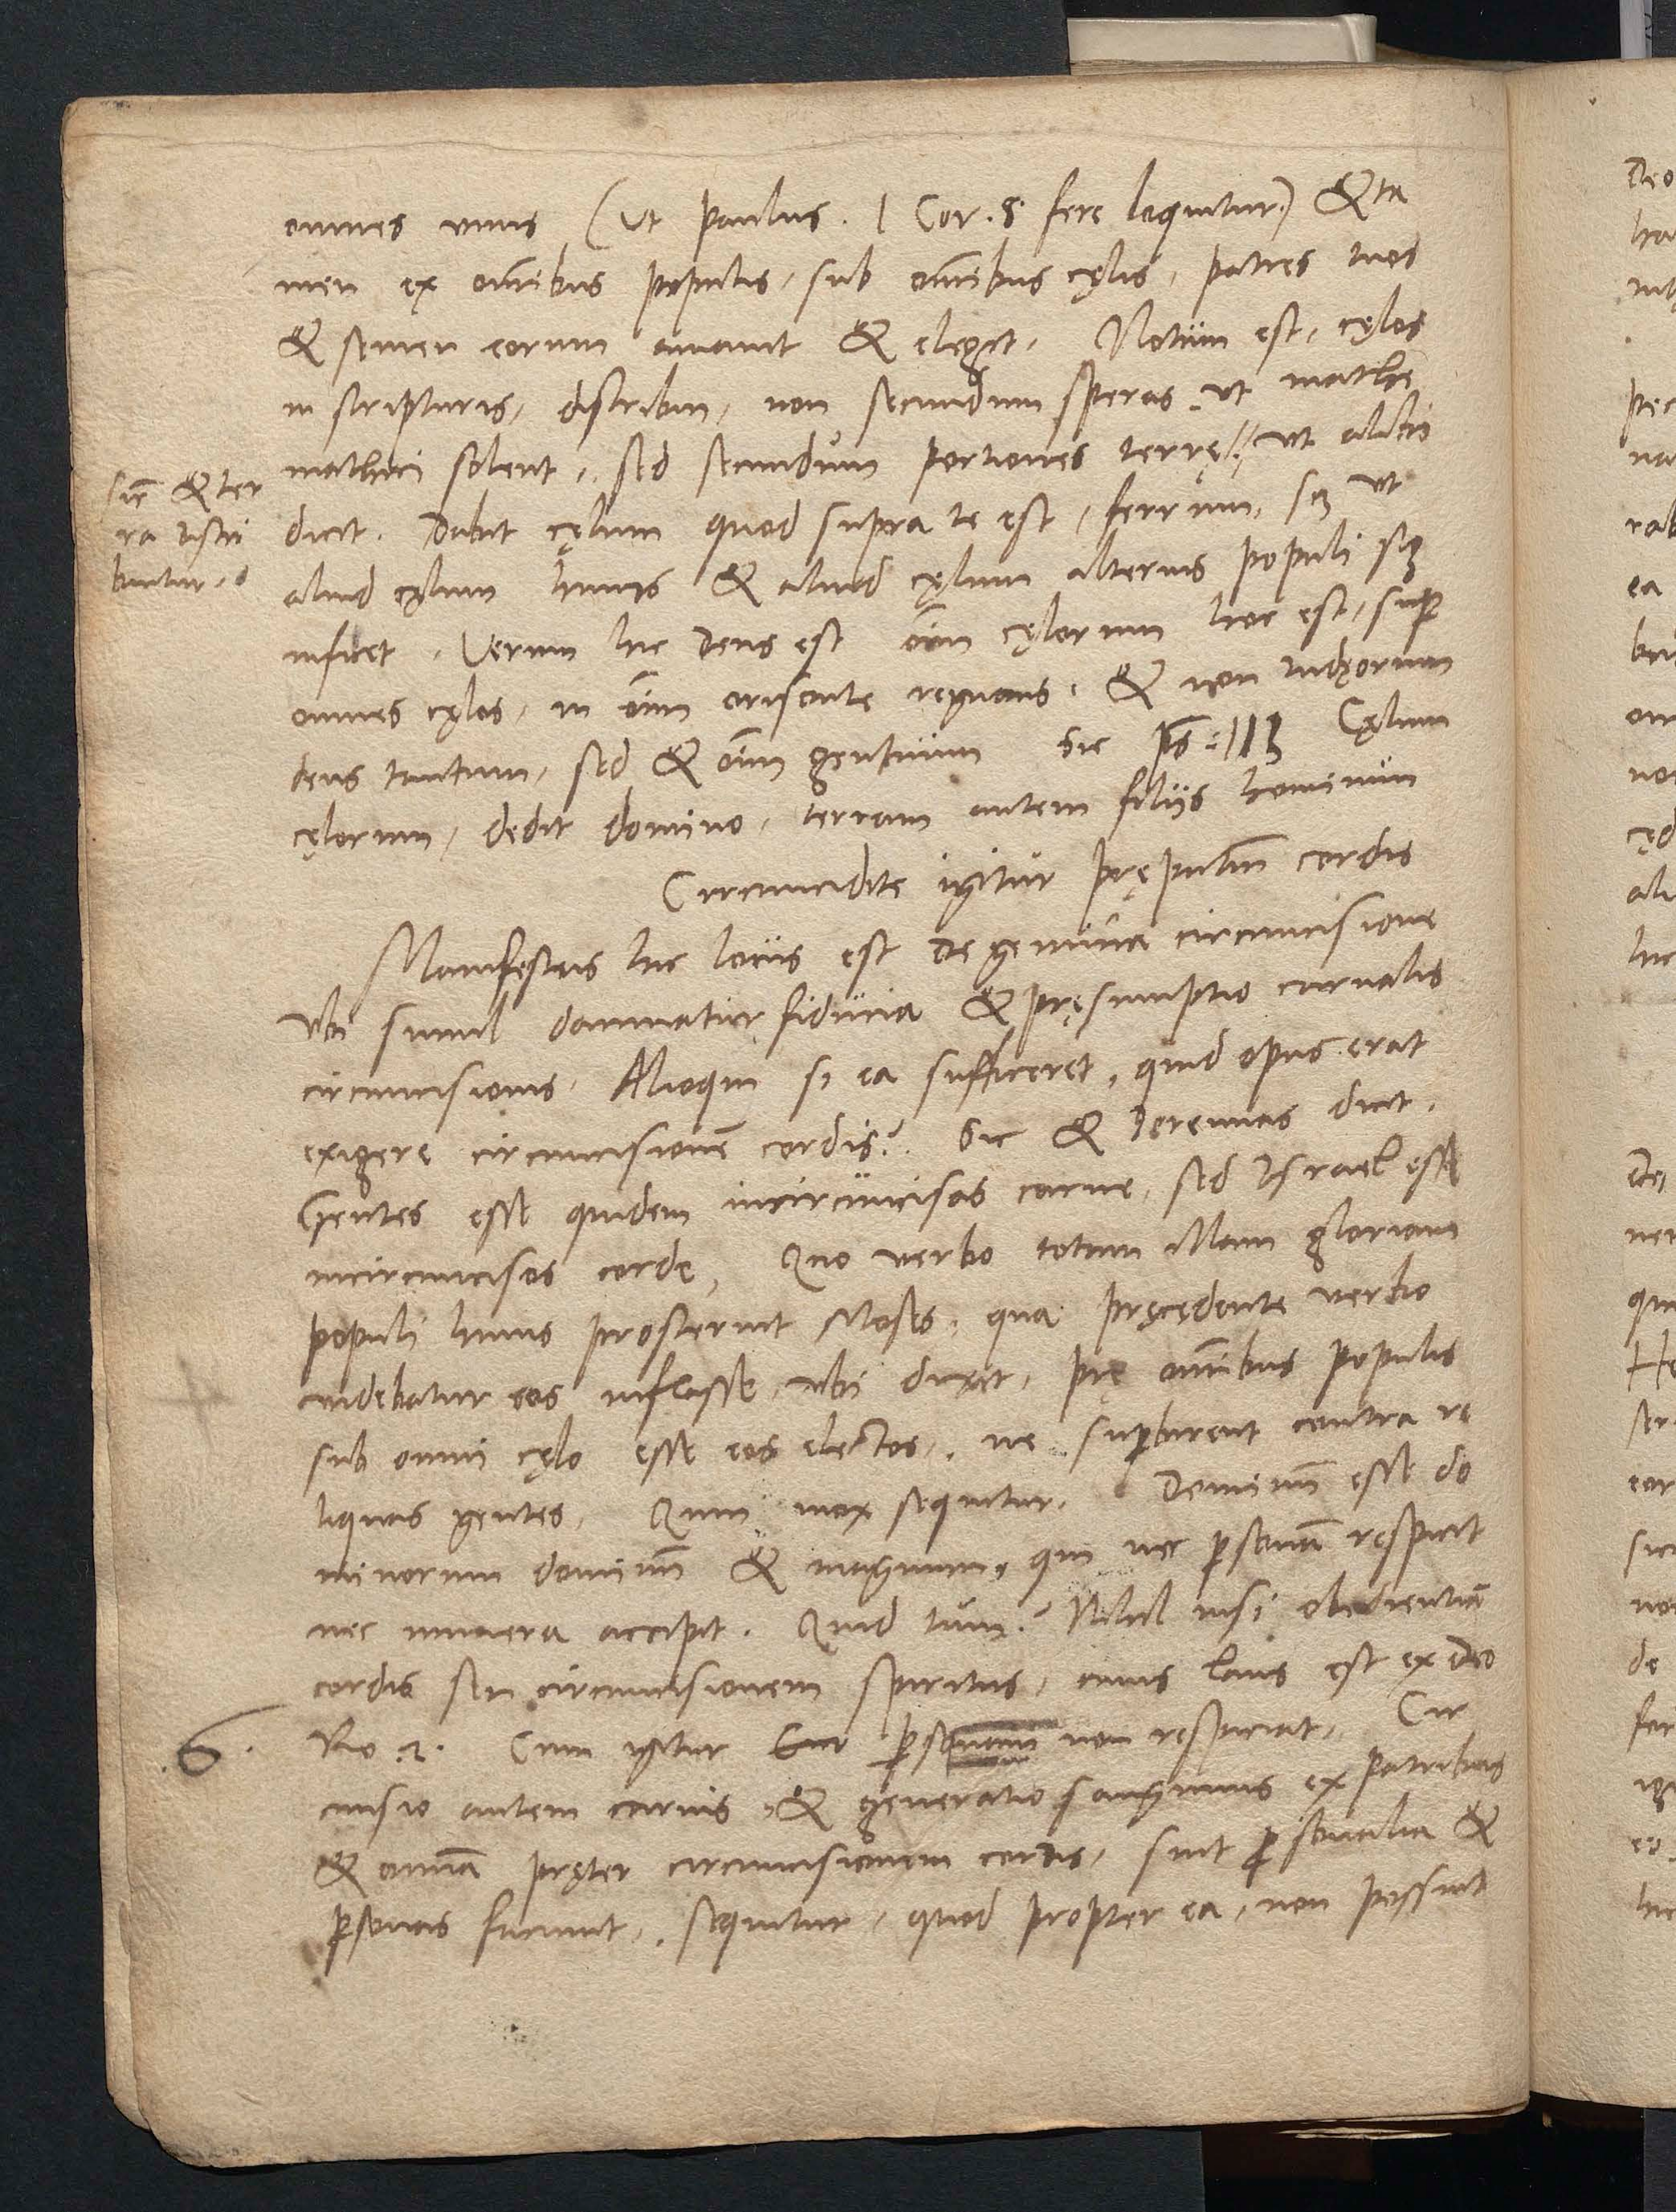 omnes unus (Ut Paulus. 1 Cor. 8 fere loquitur) & ta
men ex omnibus populis, sub omnibus cęlis, patres tuos
& semen eorum amavit & elegit. Notum est, cęlos
in scripturis, distribui, non secundum speras, ut mathe
mathici solent, sed secundum portiones terrę, ut alibi
dicit. Dabit cęlum quod supra te est, ferrum, scʒ ut
aliud cęlum huius & aliud cęlum alterius populi sig
nificet. Verum hic deus est oīm cęlorum hoc est, sup
omnes cęlos, in oīm orisonte regnans, & non Iudęorum
deus tantum, sed & oīm gentium Sic ps. 113 Cęlum
cęlorum, dedit domino, terram autem filiis hominum
Circumcidite igitur pręputiū cordis
Manifestus hic locus est de gemina circumcisione
Ubi simul damnatur fiducia & pręsumptio carnalis
circumcisionis. Alioqui si ea sufficeret, quid opus erat
exigere circumcisionē cordis? Sic & Ieremias dicit.
Gentes esse quidem incircumcisas carne, sed Israel esse
incircumcisos corde, Quo verbo totum illam gloriam
populi huius prosternit Moses, qua pręcędente verbo
videbatur eos inflasse, ubi dixit, prę omnibus populis
sub omni cęlo esse eos electos, ne supbirent contra re
liquas gentes. Quin mox sequitur. Dominū esse do
minorum dominū & magnum, qui nec psonā respicit
nec munera accipit. Quid tum? Nihil nisi obedientiā
cordis seu circumcisionem spiritus, cuius laus est ex deo
Ro 2. Cum igitur psonam non respiciat, Cir
cucisio autem carnis, & generatio sanguinis ex patribus
& omnia pręter circumcisionem cordis, sint psonalia &
psonas faciunt, sequitur, quod propter ea, non possint
Sic & ter
ra distri
buitur.
6.